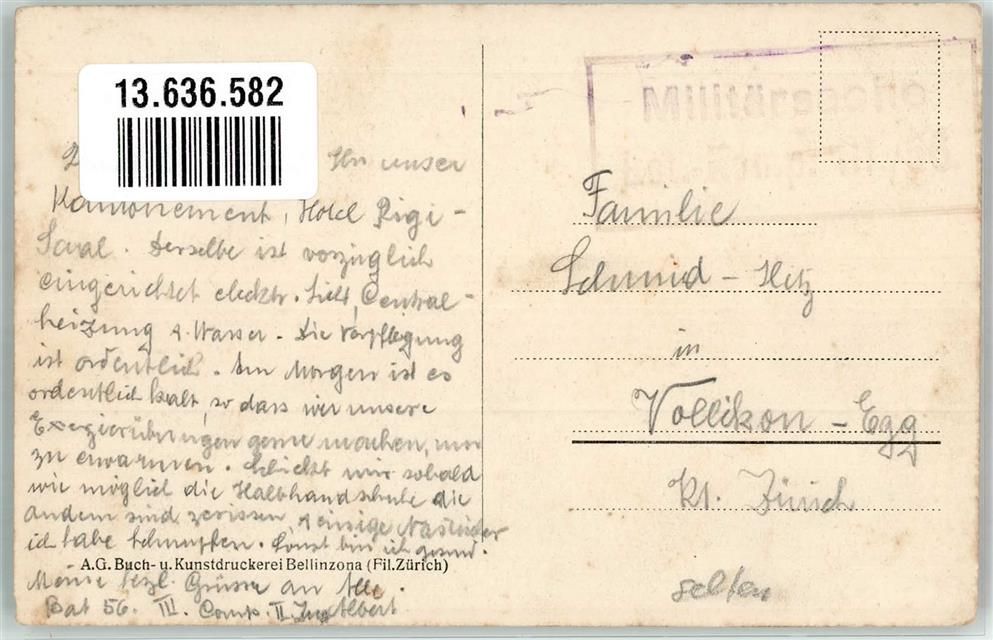 13.636.582
Ihr unser
Kantonement, Hotel Rigi-
Scval. Derselbe ist vorzüglich
eingerichtet elecktr. Licht, Central-
heizung & Wasser. Die Verpflegung
ist ordentlich. Am Morgen ist es
ordentlich kalt, so dass wir unsere
Exerzierübungen gerne machen, um
zu erwärmen. Schickt mir sobald
wie möglich die Halbhandschuhe die
andern sind zerissen, & einige Nastücher
ich habe Schnupfen. Sonst bin ich gesund.
A.G. Buch- u. Kunstdruckerei Bellinzona (Fil.Zürich)
Meine herzl. Grüsse an Alle.
Bat 56. III. Comp. II. Zug Albert
Militärsache
Familie
Schmid - Hetz
in
Vollikon - Egg
Kt. Zürich
selten